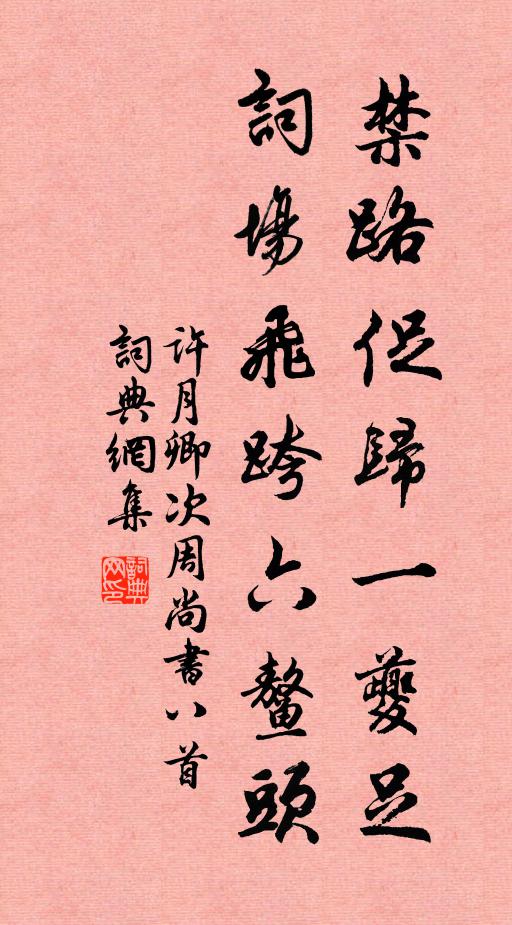 禁路促歸一夔足
詞場飛跨六鰲頭
許月卿次周尚書八首
詞典網集
詞典网印